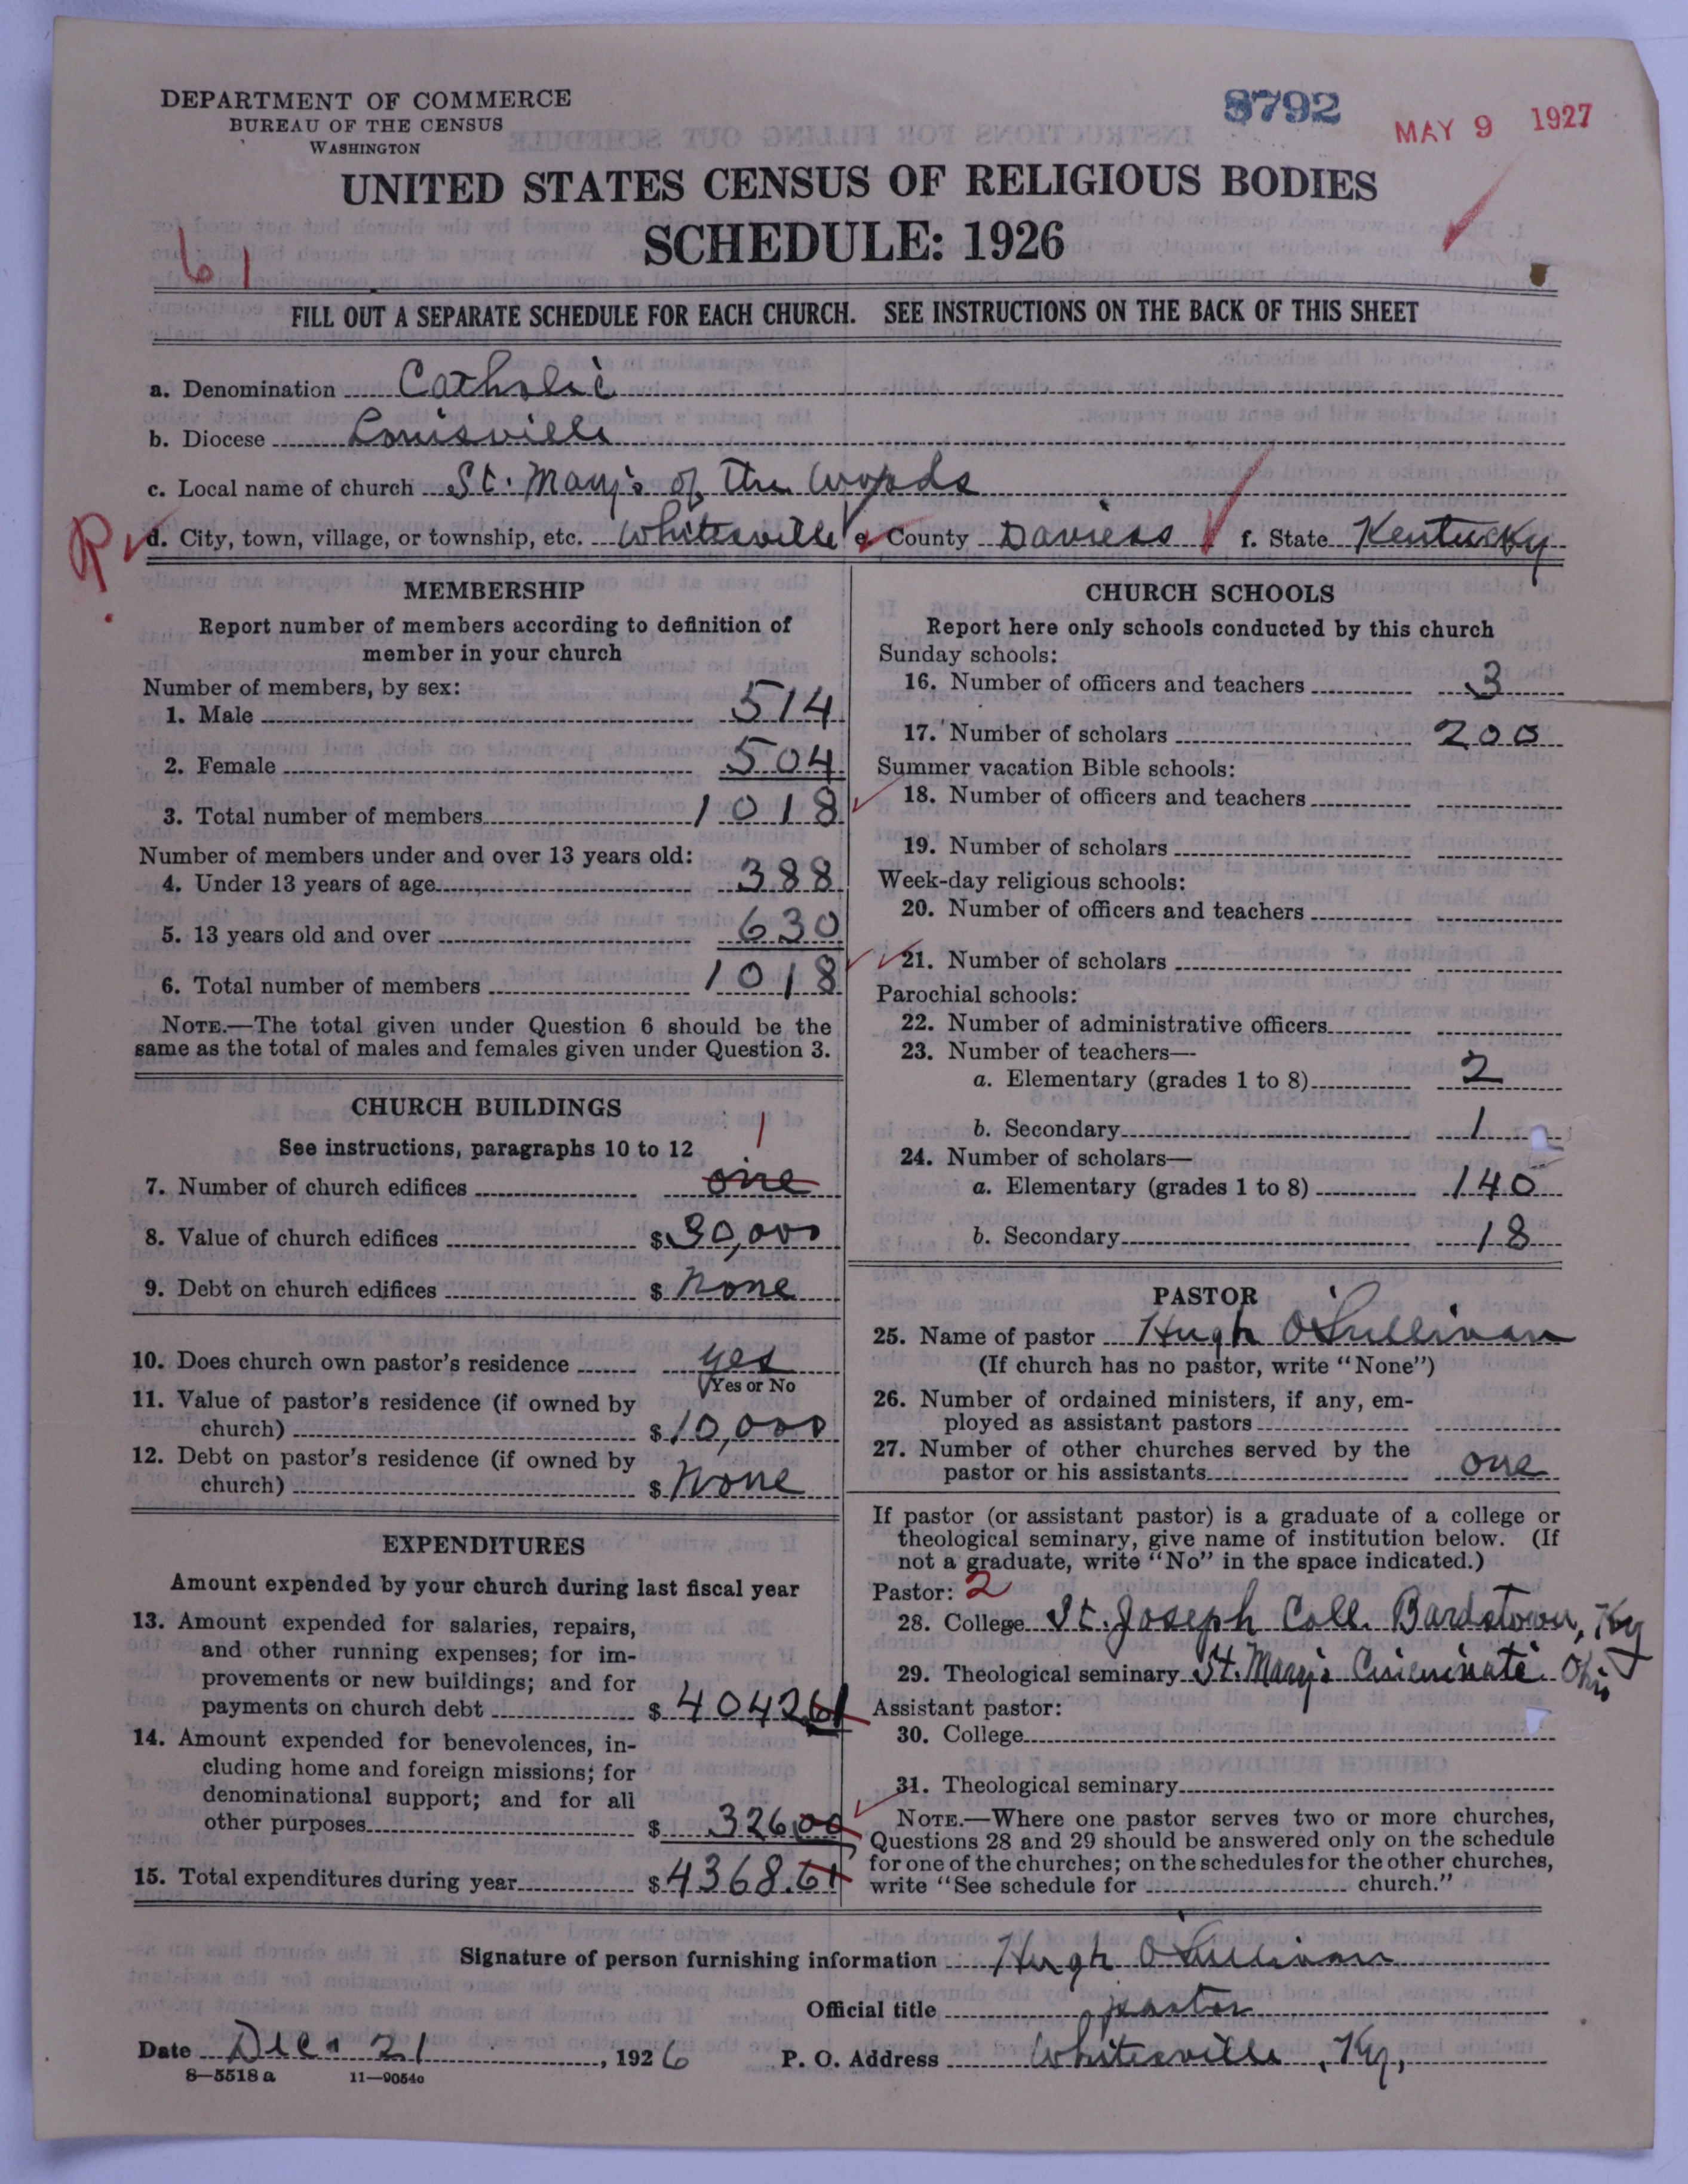 DEPARTMENT OF COMMERCE
BUREAU OF THE CENSUS
WASHINGTON
8792
MAY 9 1927
UNITED STATES CENSUS OF RELIGIOUS BODIES
SCHEDULE: 1926
61
FILL OUT A SEPARATE SCHEDULE FOR EACH CHURCH. SEE INSTRUCTIONS ON THE BACK OF THIS SHEET
a. Denomination Catholic
b. Diocese Louisville
c. Local name of church St. Mary's of the Woods
R
d. City, town, village, or township, etc. Whitesville e. County Daviess f. State Kentucky
MEMBERSHIP
Report number of members according to definition of
member in your church
Number of members, by sex:
1. Male 514
2. Female 504
3. Total number of members 1018
Number of members under and over 13 years old:
4. Under 13 years of age 388
5. 13 years old and over 630
6. Total number of members 1018
NOTE.—The total given under Question 6 should be the
same as the total of males and females given under Question 3.
CHURCH BUILDINGS
See instructions, paragraphs 10 to 12
1
7. Number of church edifices one
8. Value of church edifices $30,000
9. Debt on church edifices $ None
10. Does church own pastor's residence yes
Yes or No
11. Value of pastor's residence (if owned by
church) $10,000
12. Debt on pastor's residence (if owned by
church) $ None
EXPENDITURES
Amount expended by your church during last fiscal year
13. Amount expended for salaries, repairs,
and other running expenses; for im-
provements or new buildings; and for
payments on church debt $ 4042.61
14. Amount expended for benevolences, in-
cluding home and foreign missions; for
denominational support; and for all
other purposes $ 326.00
15. Total expenditures during year $4368.61
CHURCH SCHOOLS
Report here only schools conducted by this church
Sunday schools:
16. Number of officers and teachers 3
17. Number of scholars 200
Summer vacation Bible schools:
18. Number of officers and teachers
19. Number of scholars
Week-day religious schools:
20. Number of officers and teachers
21. Number of scholars
Parochial schools:
22. Number of administrative officers
23. Number of teachers—
a. Elementary (grades 1 to 8) 2
b. Secondary 1
24. Number of scholars—
a. Elementary (grades 1 to 8) 140
b. Secondary 18
PASTOR
25. Name of pastor Hugh O'Sullivan
(If church has no pastor, write "None")
26. Number of ordained ministers, if any, em-
ployed as assistant pastors
27. Number of other churches served by the
pastor or his assistants one
If pastor (or assistant pastor) is a graduate of a college or
theological seminary, give name of institution below. (If
not a graduate, write "No" in the space indicated.)
Pastor: 2
28. College St. Joseph Coll. Bardstown, Ky
29. Theological seminary St. Mary's Cincinnati Ohio
Assistant pastor:
30. College
31. Theological seminary
NOTE.—Where one pastor serves two or more churches,
Questions 28 and 29 should be answered only on the schedule
for one of the churches; on the schedules for the other churches,
write "See schedule for church."
Signature of person furnishing information Hugh O'Sullivan
Official title pastor
Date Dec. 21, 1926 P. O. Address Whitesville, Ky,
8—5518 a 11—9054c